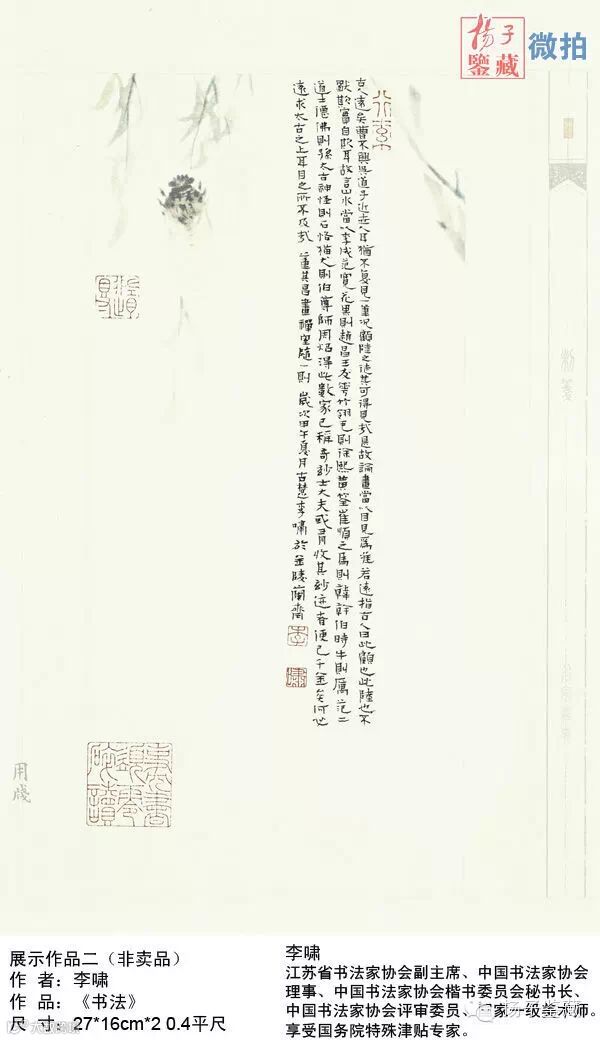 杨子
鉴藏
微拍
京遠矣曹不興吳道子近世人耳猶不復見一筆況顧陸之徒其可得見哉是故論畫當以目見為准若遠指古人曰此顧也此陸也不
獸欺當自欺耳故言山水當以李成范寬花果則趙昌王友雩竹翎毛則徐熙黃筌崔順之馬則韓幹伯時牛則厲范二
道士僊佛則孫太古神怪則石恪猫犬則伯尊師周炤得此數家已稱奇妙士大夫或有收其妙迹者便已千金矣何必
遠求太古之上耳目之所不及哉 董其昌畫禪室隨一則 歲次甲午夏月古楚李嘯於金陵蘭齋
李
嘯
用牋
展示作品二（非卖品）
作 者：李啸
作 品：《书法》
尺 寸：27*16cm*2 0.4平尺
李啸
江苏省书法家协会副主席、中国书法家协会
理事、中国书法家协会楷书委员会秘书长、
中国书法家协会评审委员、国家一级美术师。
享受国务院特殊津贴专家。
扬子鉴藏